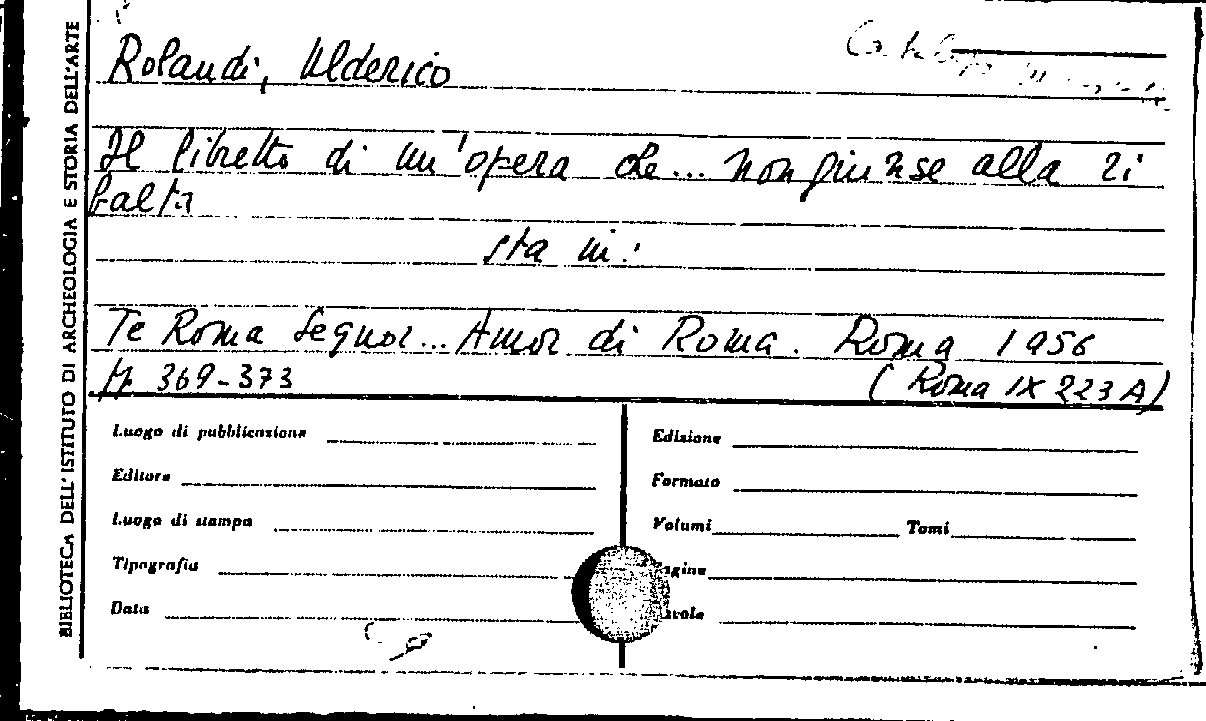 BIBLIOTECA DELL'ISTITUTO DI ARCHEOLOGIA E STORIA DELL'ARTE
Rolandi, Ulderico
Il libretto di un'opera che... non giunse alla ri
balta
sta in:
Te Roma sequor... Amor di Roma. Roma 1956
pp. 369-373 (Roma IX 223 A)
Luogo di pubblicazione
Edizione
Editore
Formato
Luogo di stampa
Volumi Tomi
Tipografia
Data